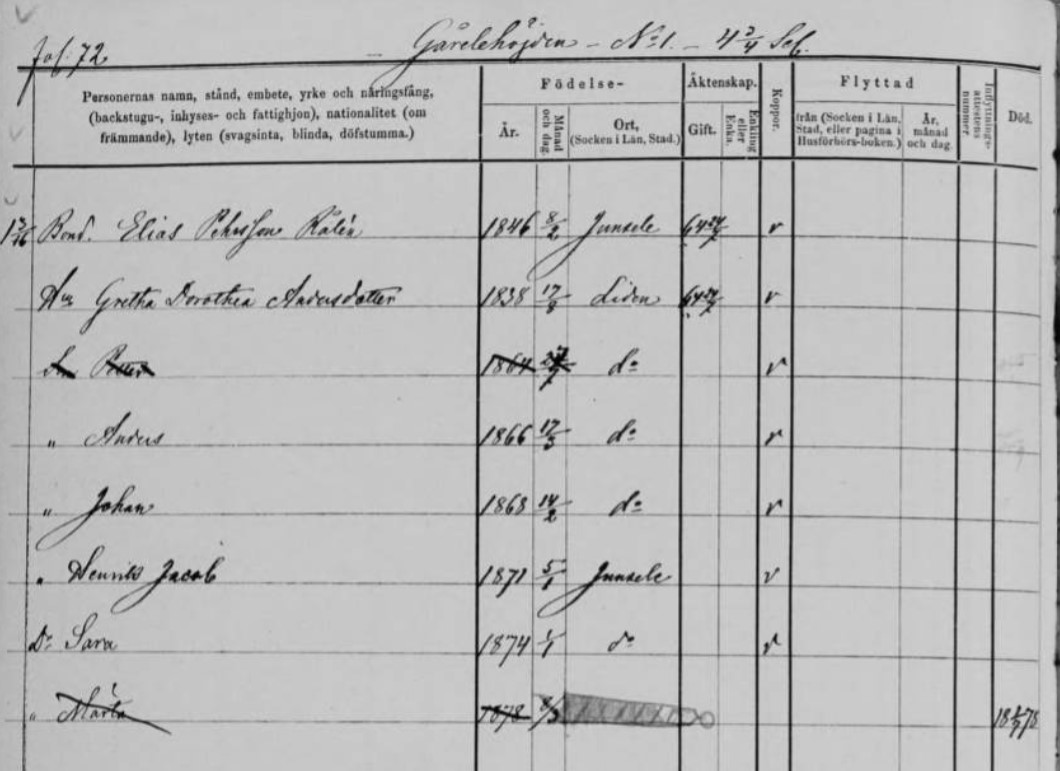 fol. 72 – Gårelehöjden – No 1. – 4 3/4 Sel.
Personernas namn, stånd, embete, yrke och näringsfång, (backstugu-, inhyses- och fattighjon), nationalitet (om främmande), lyten (svagsinta, blinda, döfstumma.) Födelse- År. Månad och dag. Ort, (Socken i Län, Stad.) Äktenskap. Gift. Enkling eller Enka. Koppor. Flyttad från (Socken i Län, Stad, eller pagina i Husförhörs-boken.) År, månad och dag. Inflyttnings-attestens nummer Död.
Bond. Elias Pehrsson Kålén 1846 8/2 Junsele v
Hu Gretha Dorothea Andersdotter 1838 17/8 Liden v
Sn Petter 1864 do v
" Anders 1866 17/3 do v
" Johan 1868 14/2 do v
" Henrik Jacob 1871 5/1 Junsele v
Dr Sara 1874 1/1 do v
" Märta 1878 8/3